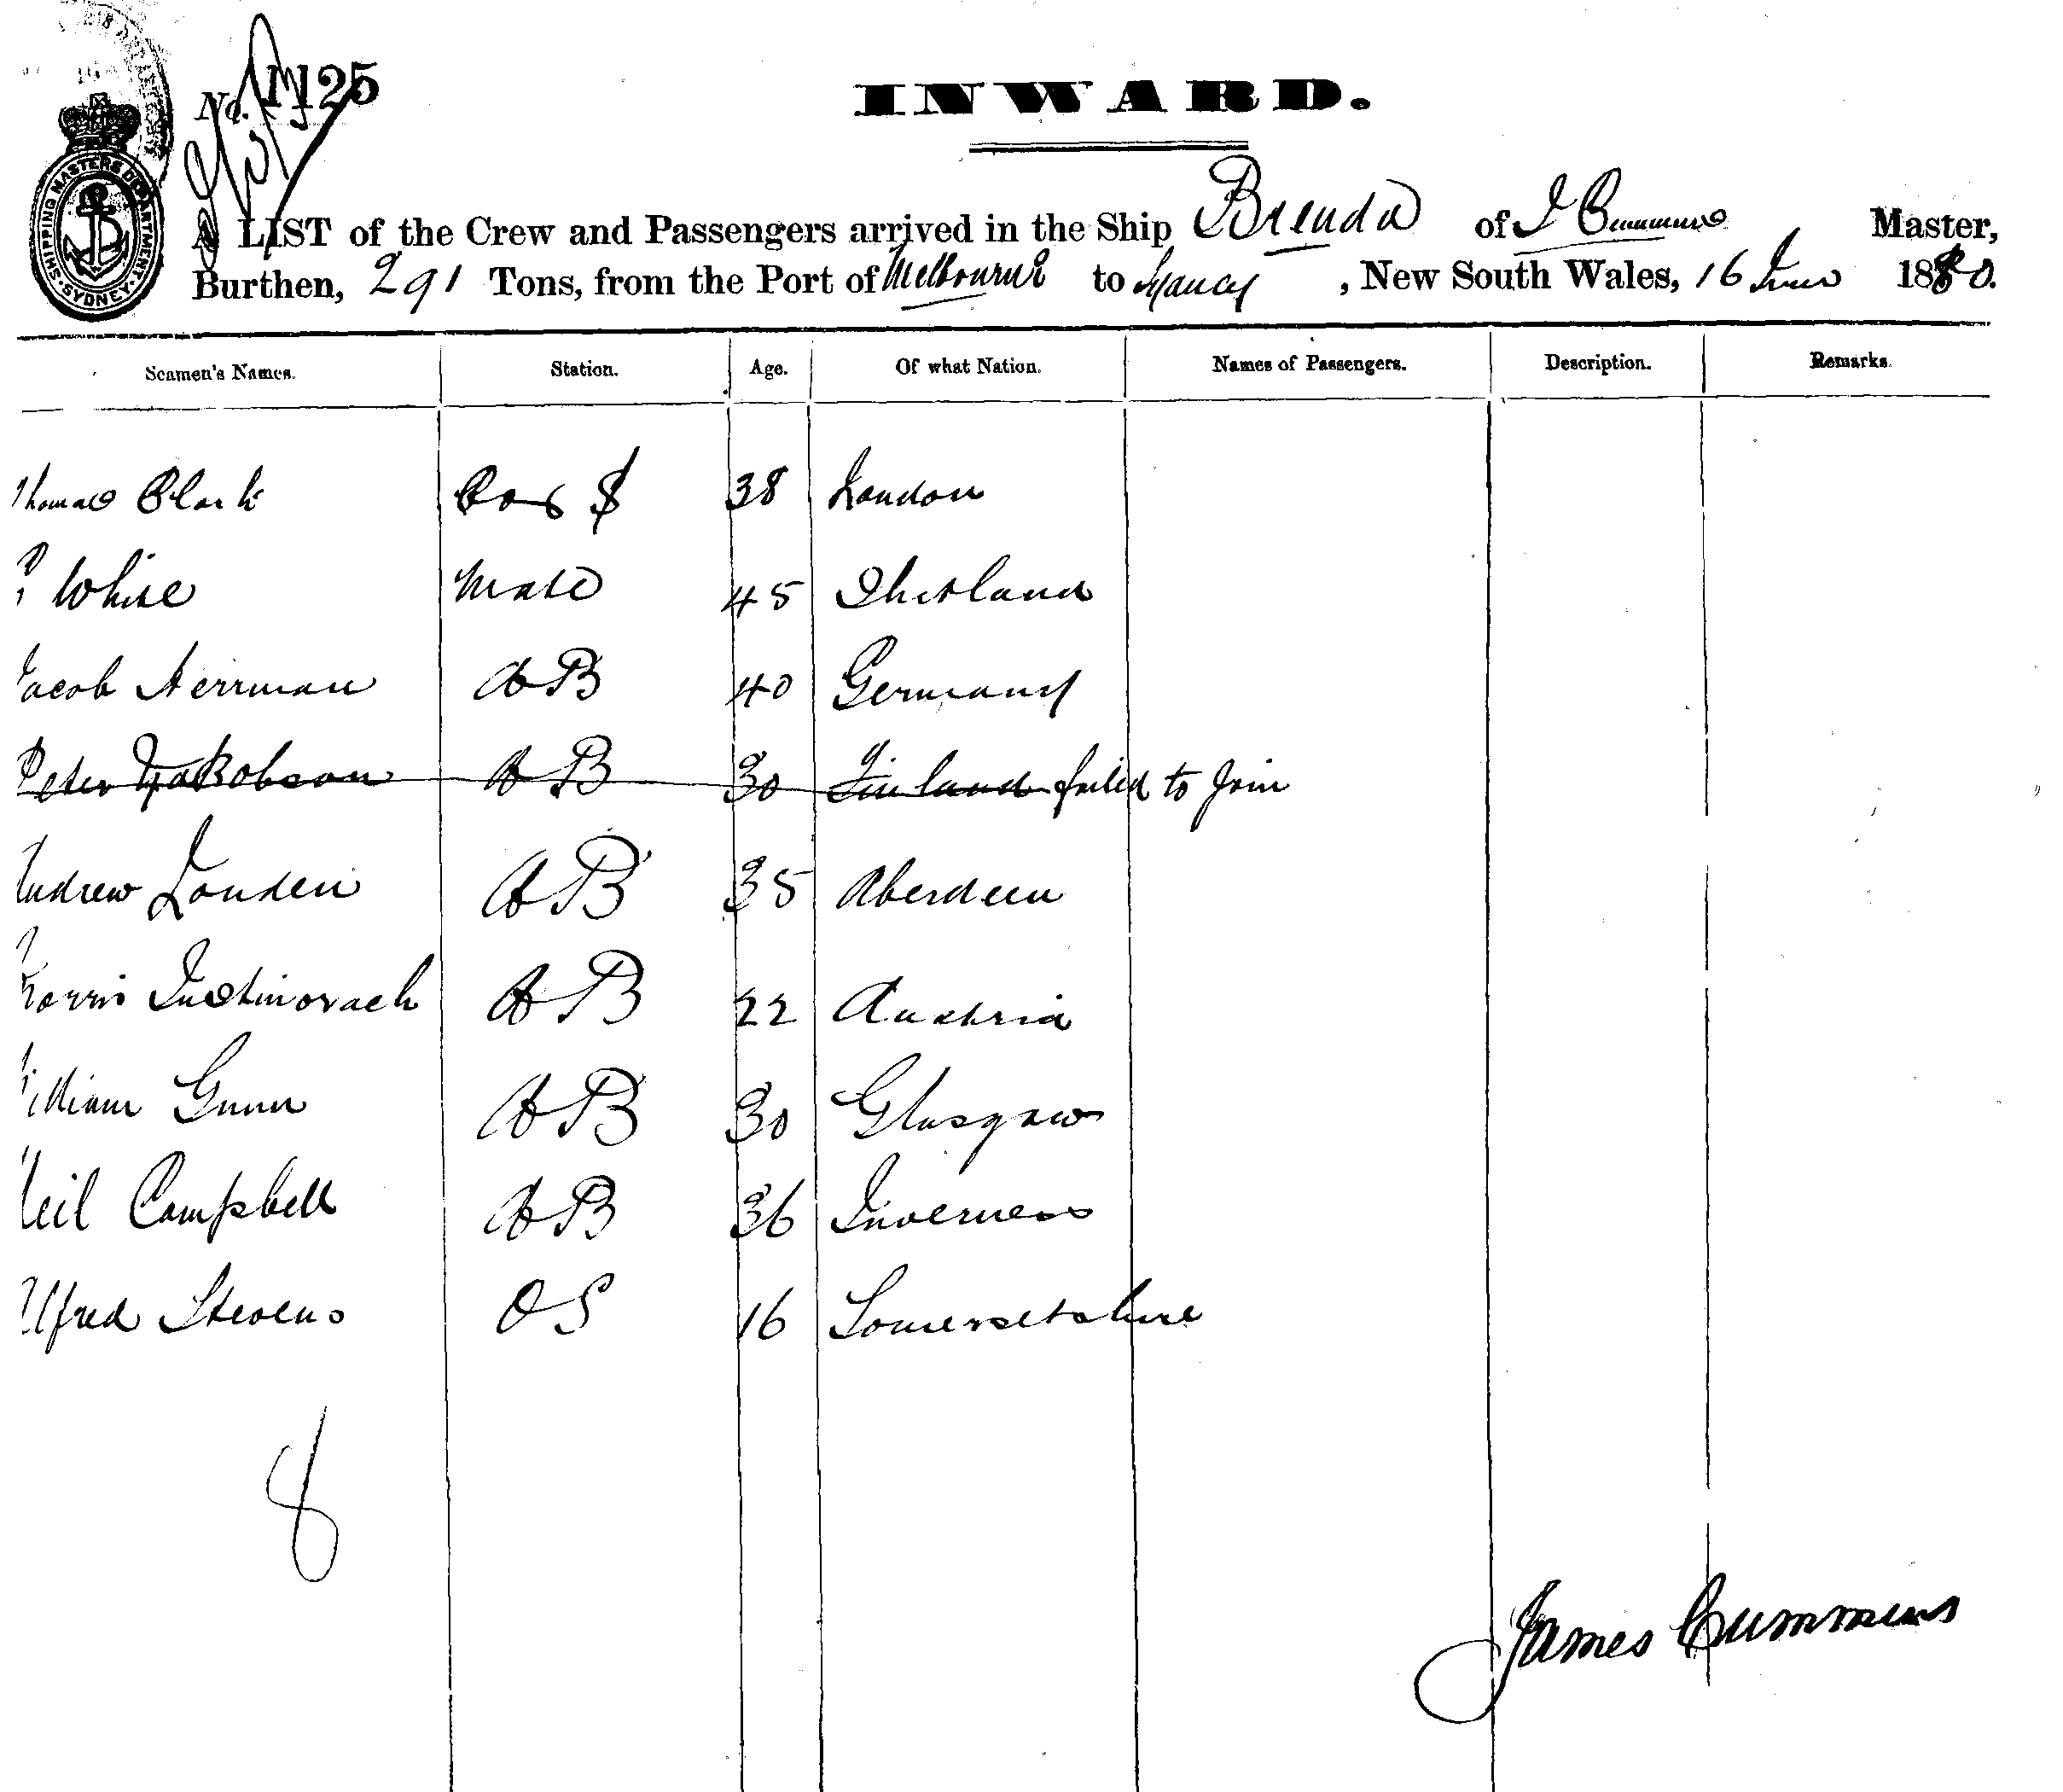 SHIPPING MASTERS DEPARTMENT SYDNEY
No. 1125
INWARD.
A LIST of the Crew and Passengers arrived in the Ship Brenda of J Cummins Master,
Burthen, 291 Tons, from the Port of Melbourne to Sydney, New South Wales, 16 June 1880.
Seamen's Names. Station. Age. Of what Nation. Names of Passengers. Description. Remarks.
Thomas Clark 38 London
White Mate 45 Shetland
Jacob Herrman AB 40 Germany
Peter Jakobson AB 30 Finland failed to join
Andrew Louden AB 35 Aberdeen
AB 22 Austria
William Gunn AB 30 Glasgow
Neil Campbell AB 36 Inverness
Alfred Stevens OS 16 Somersetshire
8
James Cummins